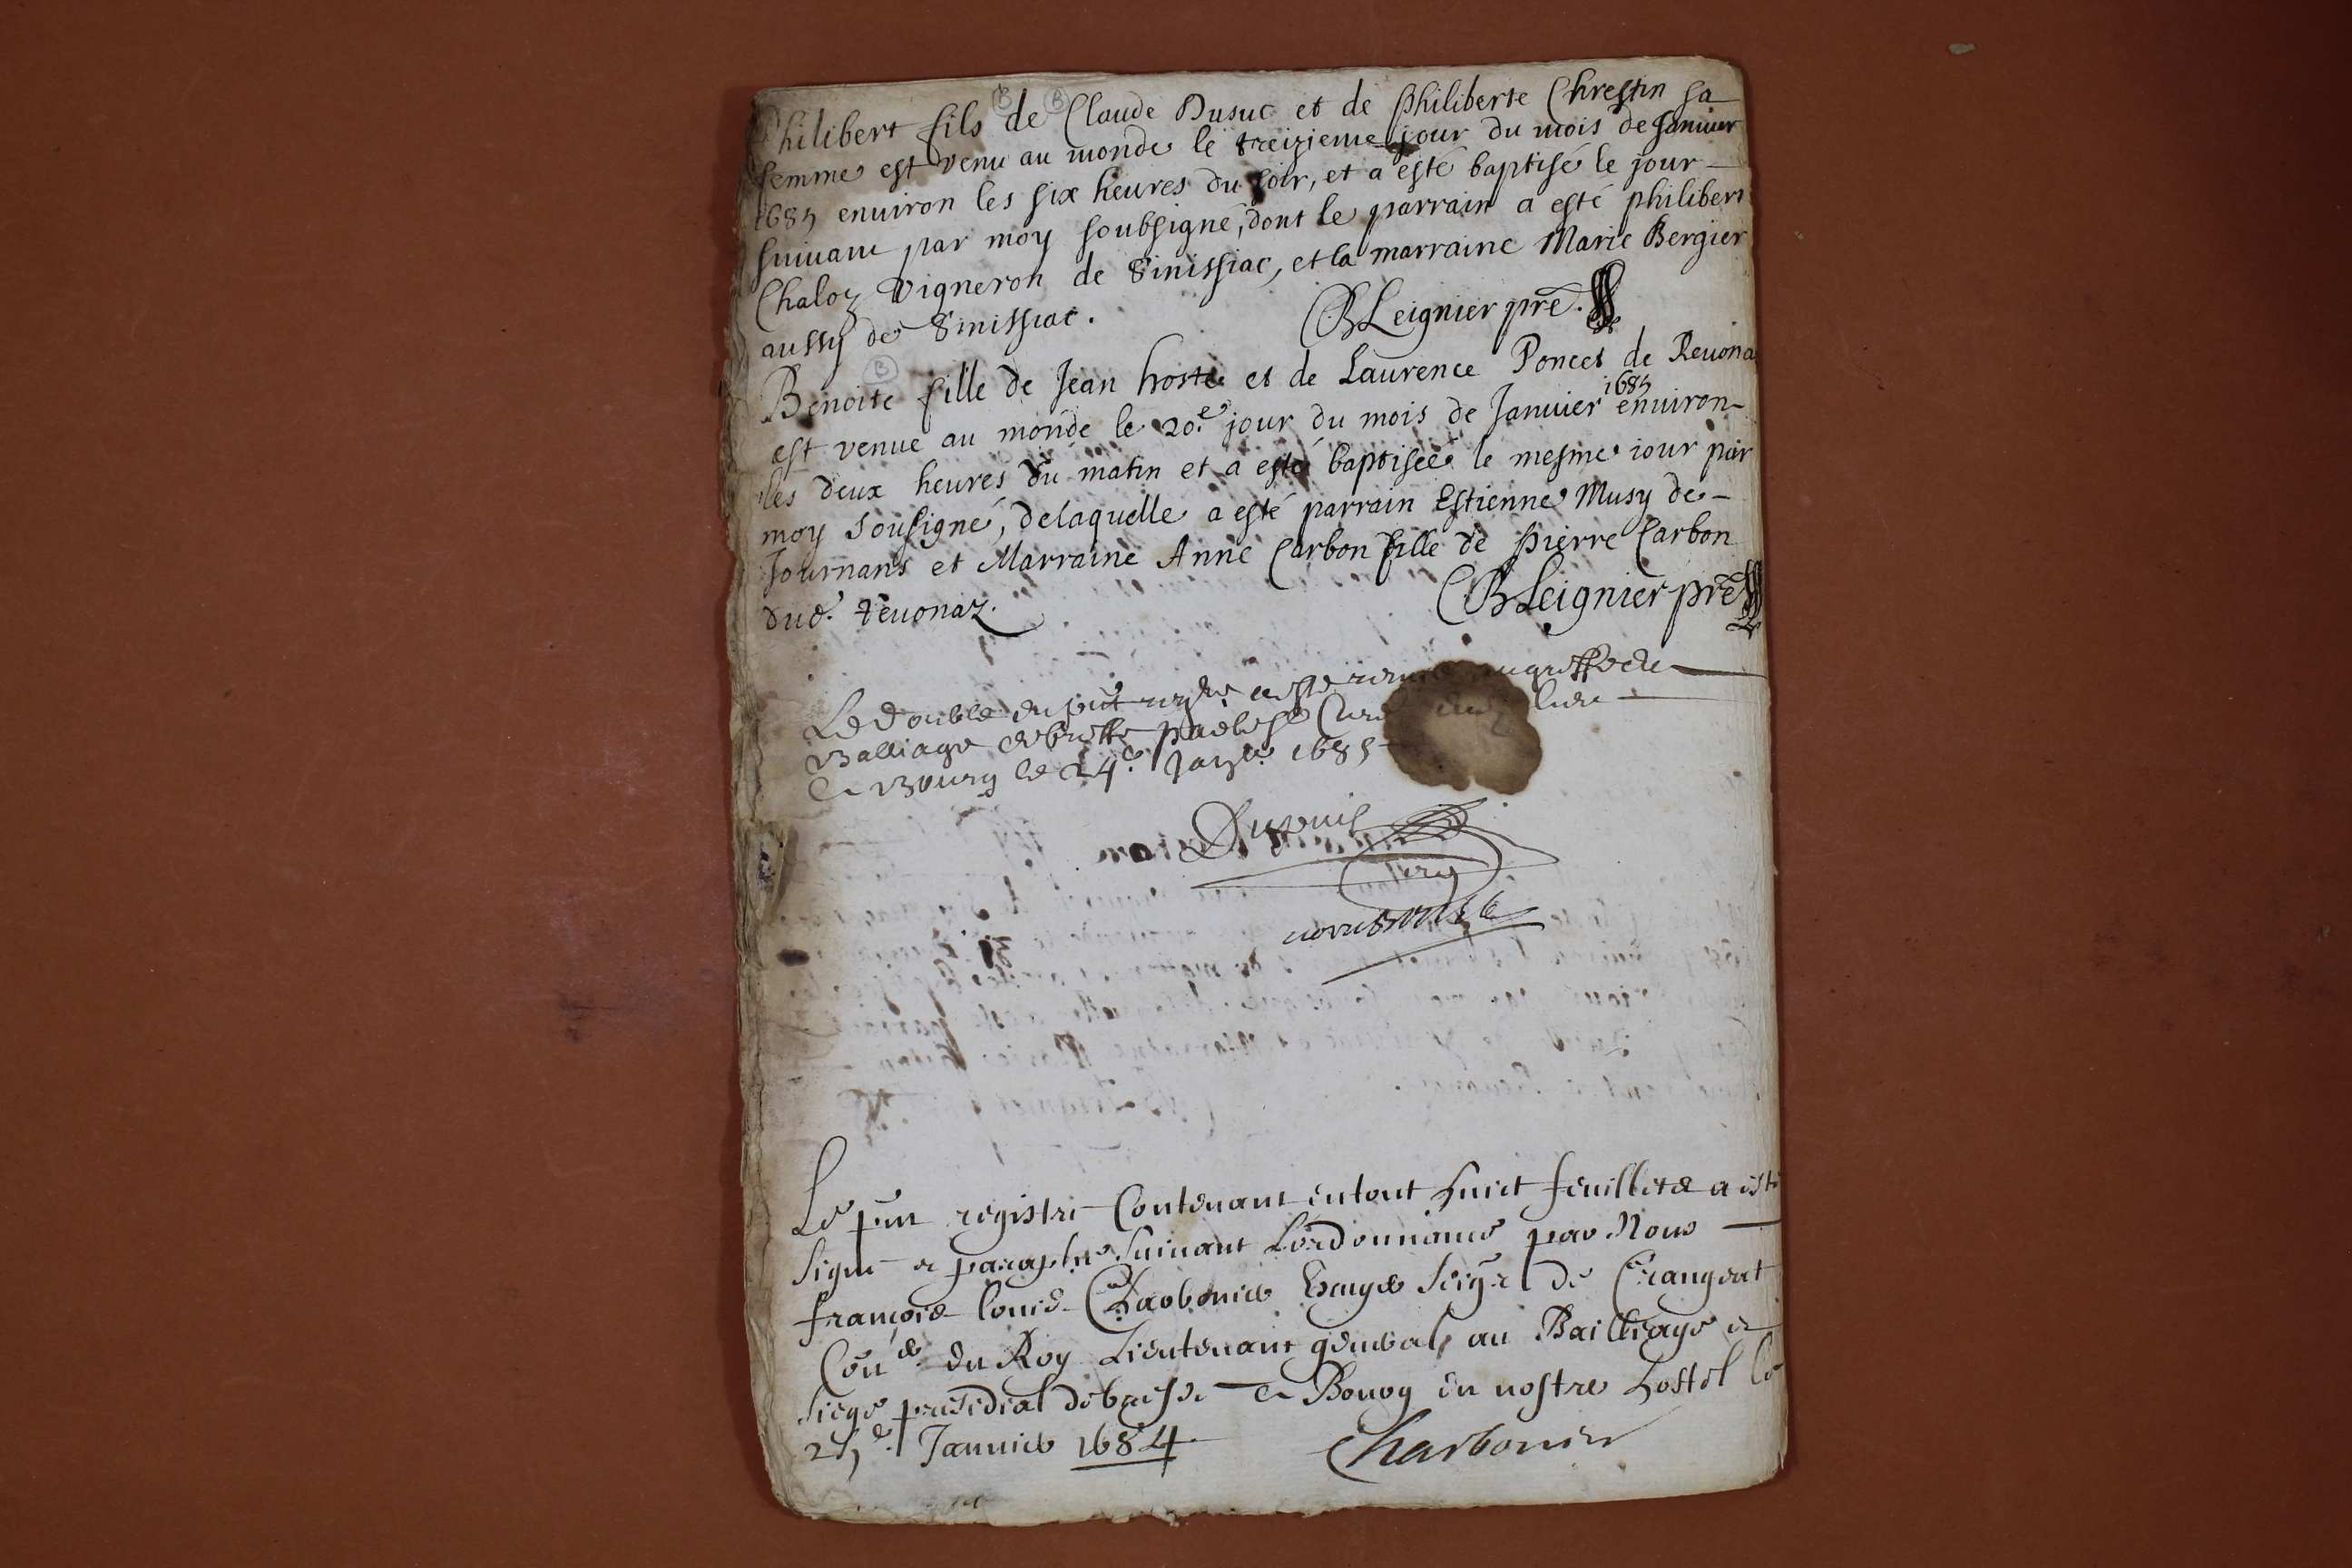 Philibert fils de Claude Dusuc et de Philiberte Chrestin sa
femme est venu au monde le treizieme jour du mois de Januier
1685 enuiron les six heures du soir, et a esté baptisé le jour
suiuant par moy soubsigné, dont le parrain a esté philibert
Chaloz Vigneron de Sinissiac, et la marraine Marie Bergier
aussy de Sinissiac.
B Leignier pre.
Benoite fille de Jean hoste et de Laurence Poncet de Reuona
1685
est venue au monde le 20.e jour du mois de Januier enuiron
les deux heures du matin et a esté baptisée le mesme iour par
moy sousigné, delaquelle a esté parrain Estienne Musy de
Journans et Marraine Anne Carbon fille de pierre Carbon
dud. reuonaz.
B Leignier pre
Le double du pnt a esté au greffe de
Balliage
a Bourg le 24.e 1685
Dupuis
Le pnt registre Contenant en tout huict feuilletz a esté
signé et paraphé suiuant Lordonnance par Nous
françois louis Charbonier Seigr de Crangeat
Coner du Roy Lieutenant general au Bailliage et
siege presidial de bresse a Bourg en nostre hostel le
25.e Januier 1684
Charbonier